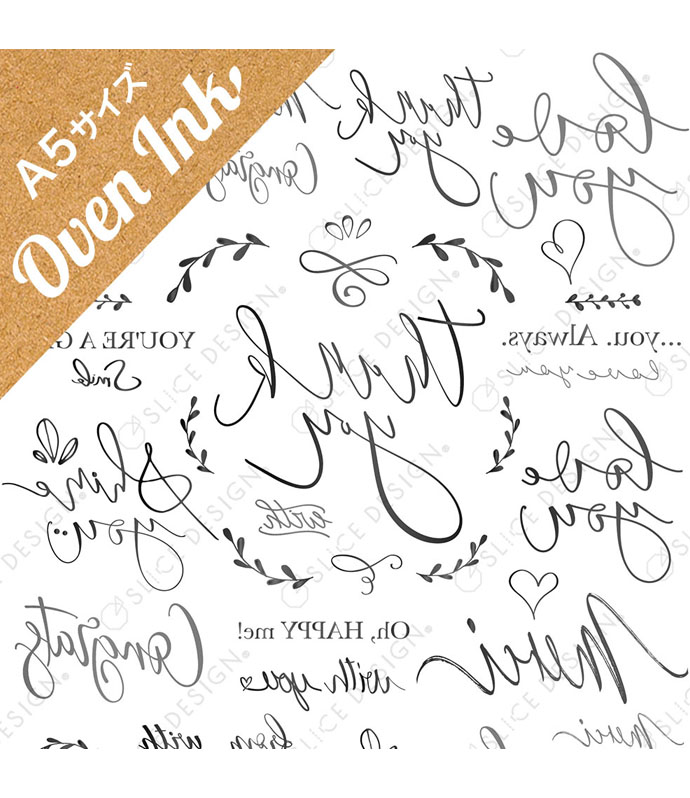 A5サイズ
Oven Ink
Congrats
thank
you
love
you
YOU'RE A G
Smile
thank
you
...you. Always.
love you
shine
you
with
love
you
Congrats
Oh, HAPPY me!
with you
Merci
with
from
Merci
SLICE DESIGN®